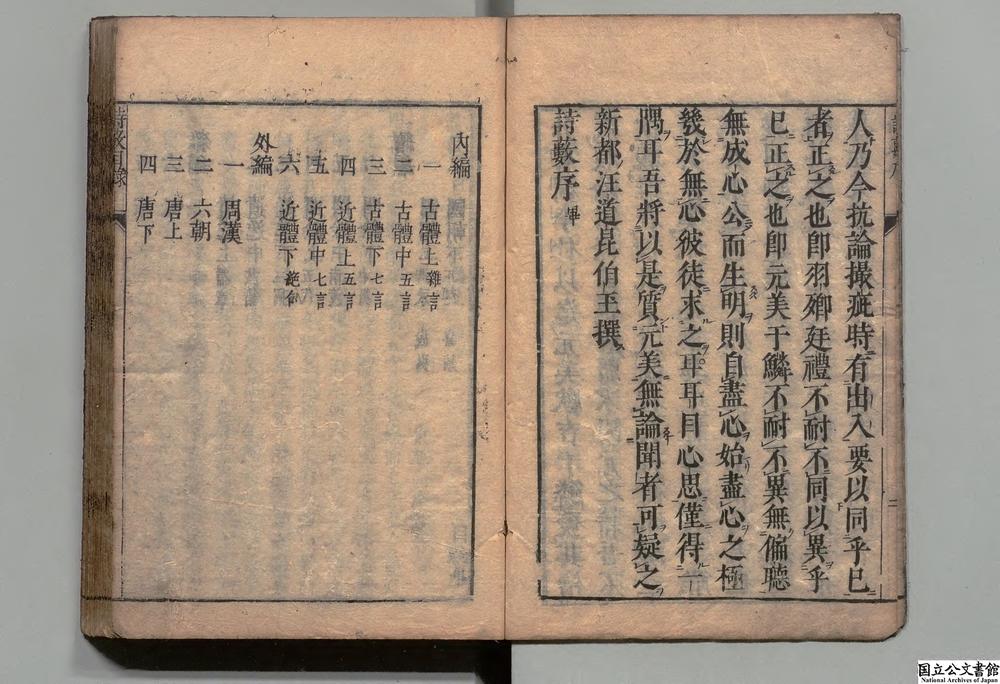 人乃今抗論撮疵時有出入要以同乎已
者正之也卽羽卿廷禮不耐不同以異乎
已正之也卽元美于鱗不耐不異無偏聽
無成心公而生明則自盡心始盡心之極
幾於無心彼徒求之耳耳目心思僅得一
隅耳吾將以是質元美無論聞者可疑之
新都汪道昆伯玉撰
詩藪序畢
內編
一 古體上雜言
二 古體中五言
三 古體下七言
四 近體上五言
五 近體中七言
六 近體下絕句
外編
一 周漢
二 六朝
三 唐上
四 唐下
詩藪目錄
国立公文書館
National Archives of Japan